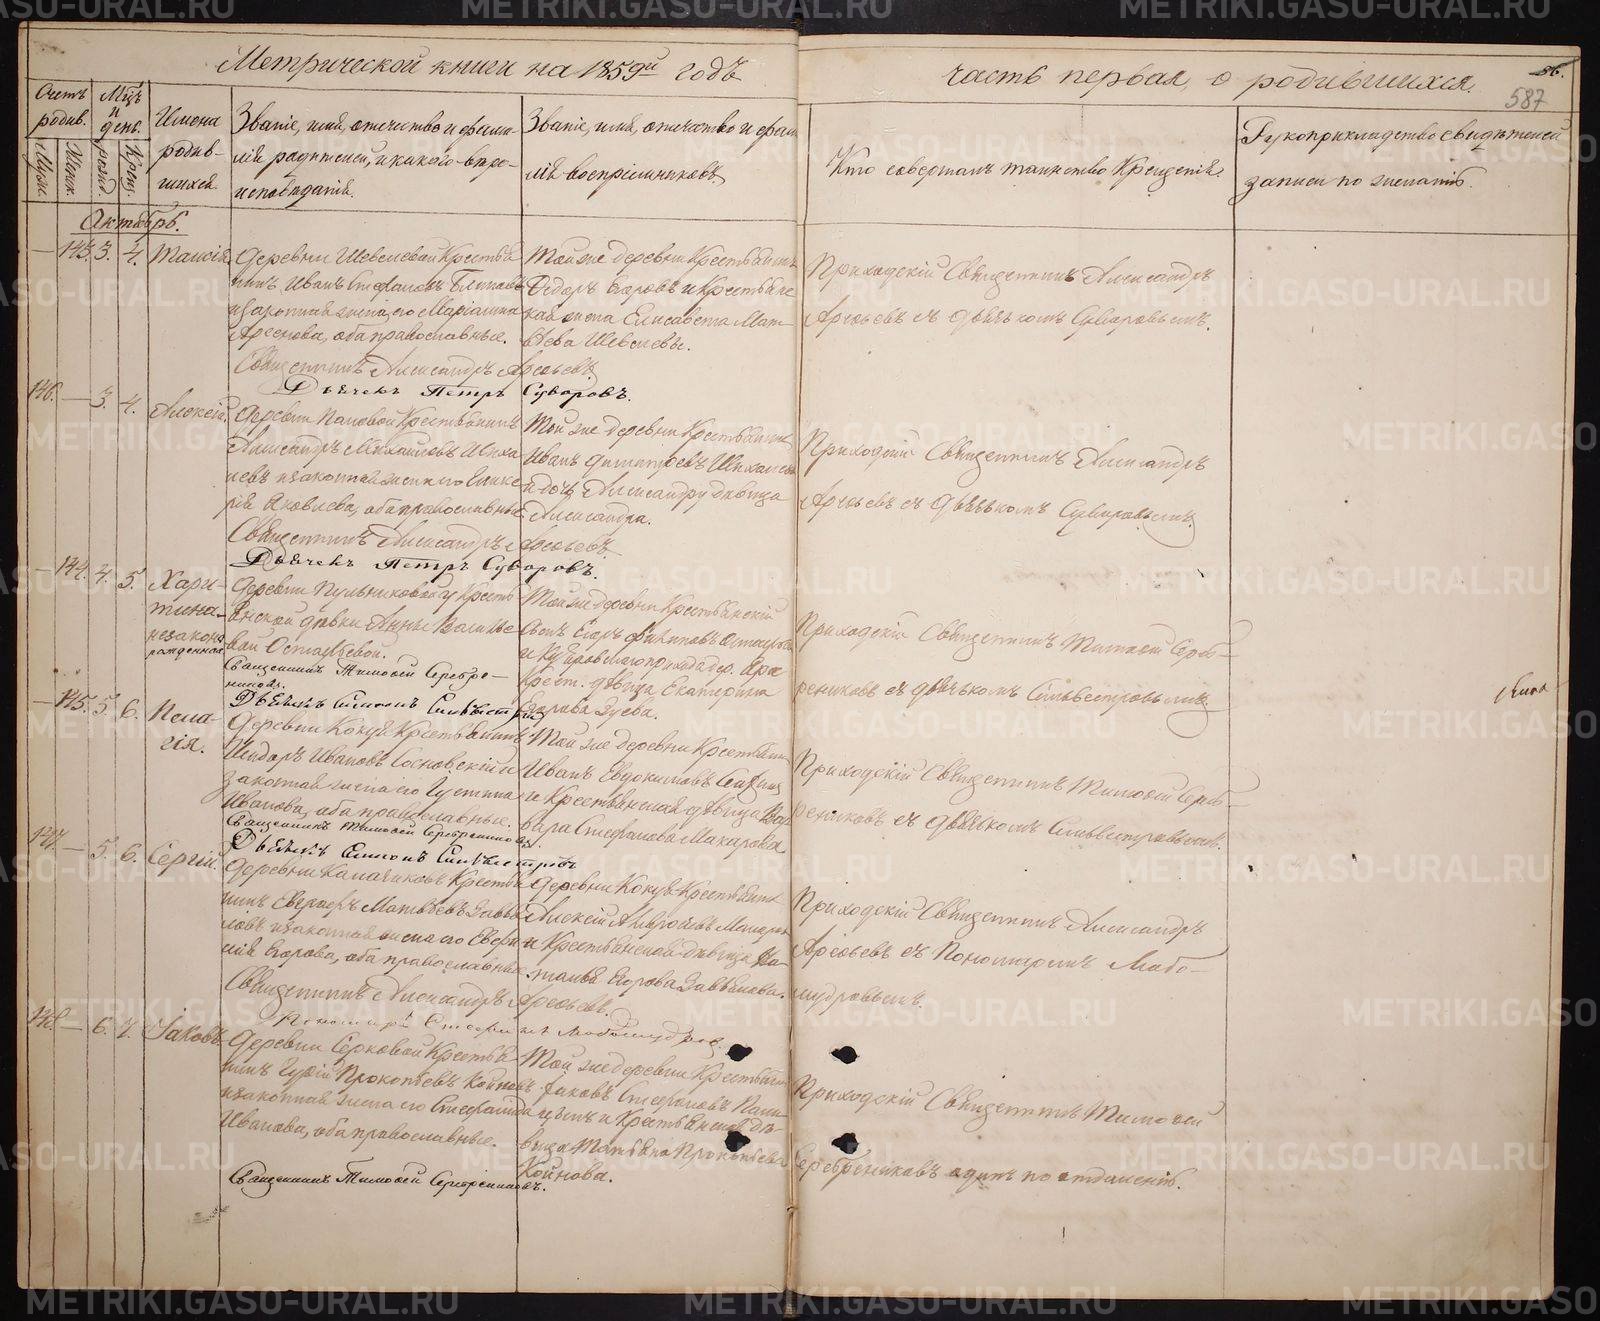 Метрической книги на 1859й годъ
часть первая, о родившихся.
56.
587
Счетъ родив.
Муж.
Женск.
Мцъ и день.
рожд.
Крещ.
Имена родив-
шихся.
Званіе, имя, отчество и фами-
лія родителей, и какого вѣро-
исповѣданія.
Званіе, имя, отчество и фами
лія воспріемниковъ.
Кто совершалъ таинство Крещенія.
Рукоприкладство свидѣтелей
записи по желанію.
Октябрь.
— 143. 3. 4. Таисія
Деревни Шевелевой Крестья
нинъ Иванъ Стефановъ
и законная жена его Маріамна
Арсенова, оба православные.
Священникъ Александръ Арефьевъ.
Дьячекъ Петръ Суворовъ.
Той же деревни Крестьянинъ
Ѳедоръ Егоровъ и Крестьянс
кая жена Елисавета Мат-
вѣева Шевелевы.
Приходскій Священникъ Александръ
Арефьевъ съ дьячкомъ Суворовымъ.
146. — 3. 4. Алексій.
Деревни Пановой Крестьянинъ
Александръ Михайловъ Шиха
левъ и законная жена его Глике
рія Яковлева, оба православные
Священникъ Александръ Арефьевъ.
Дьячекъ Петръ Суворовъ.
Той же деревни Крестьянинъ
Иванъ Димитріевъ Шихалевъ
и дочь Александру дѣвица
Александра.
Приходскій Священникъ Александръ
Арефьевъ съ дьячкомъ Суворовымъ.
— 144. 4. 5. Хари-
тина
незакон
рожденная
Деревни Пульниковой у Кресть
янской дѣвки Анны Василье
вой Остафьевой.
Священникъ Тимофей Серебре-
никовъ.
Дьячекъ Симеонъ Сильвестровъ
Той же деревни Крестьянскій
сынъ Егоръ Филиповъ Остафьевъ
Крест. дѣвица Екатерина
Егорова Зуева.
Приходскій Священникъ Тимофей Сереб-
рениковъ съ дьячкомъ Сильвестровымъ
— 145. 5. 6. Пела-
гія.
Деревни Кокуй Крестьянинъ
Исидоръ Ивановъ Сосновскій и
законная жена его Іустина
Иванова, оба православные.
Священникъ Тимофей Серебрениковъ.
Дьячекъ Симеонъ Сильвестровъ
Той же деревни Крестьянинъ
Иванъ Евдокимовъ
и Крестьянская дѣвица Вар
вара Стефанова Макарова
Приходскій Священникъ Тимофей Сереб-
рениковъ съ дьячкомъ Сильвестровымъ.
147. — 5. 6. Сергій.
Деревни Калачиковъ Крестья
нинъ Матвѣевъ Завья
ловъ и законная жена его Евфи
мія Егорова, оба православные.
Священникъ Александръ Арефьевъ.
Пономарь Стефанъ Любомудровъ.
Деревни Кокуй Крестьянинъ
Алексій Амвросіевъ Макаровъ
и Крестьянская дѣвица На-
талія Егорова Завьялова.
Приходскій Священникъ Александръ
Арефьевъ съ Пономаремъ Любо-
мудровымъ.
148. — 6. 7. Іаковъ.
Деревни Серковой Крестья
нинъ Гурій Прокопьевъ Койновъ
и законная жена его Стефанида
Иванова, оба православные.
Священникъ Тимофей Серебрениковъ.
Той же деревни Крестьянинъ
Іаковъ Стефановъ Пани-
цынъ и Крестьянская дѣ-
вица Татьяна Прокопьева
Койнова.
Приходскій Священникъ Тимофей
Серебрениковъ одинъ по отдаленію.
METRIKI.GASO-URAL.RU